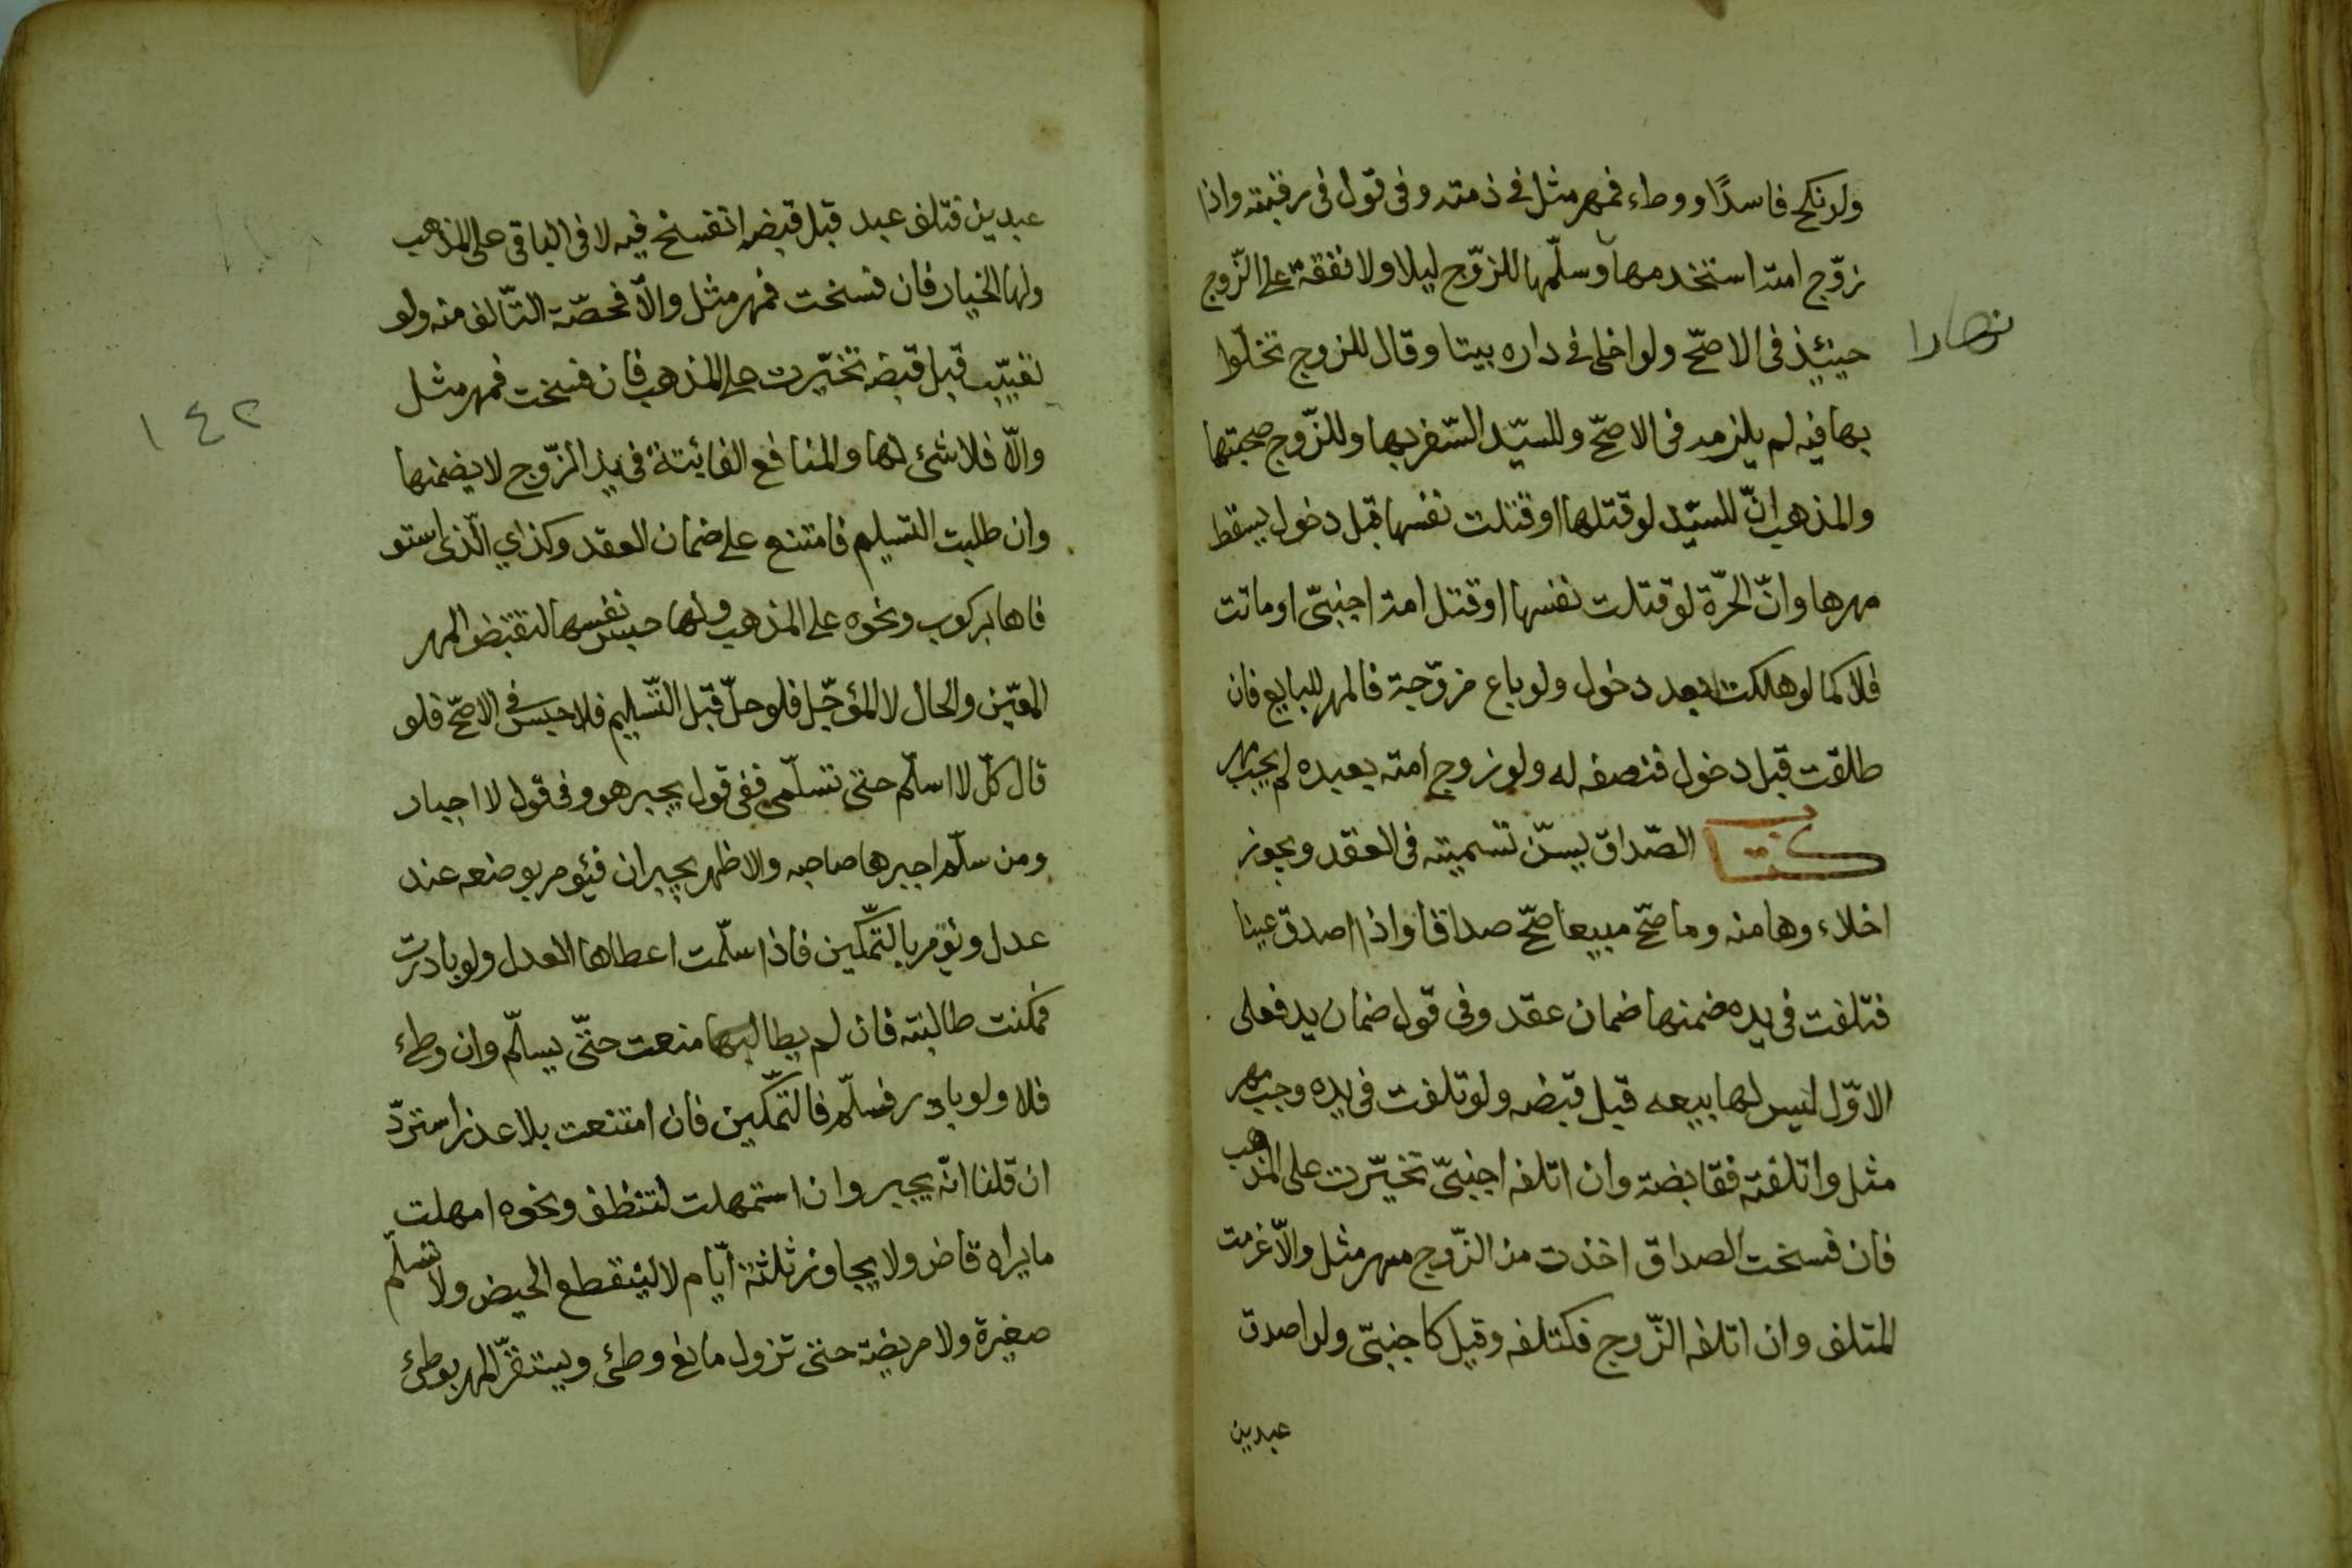 ولو نكح فاسدًا ووطاء فمهر مثل في ذمته وفى قول فى رقبته واذا
زوّج امته استخدمها وسلّمها للزوّج ليلا ولا نفقة على الزّوج
نهارا
حينئذ فى الاصحّ ولو اخلى في داره بيتا وقال للزوج تخلّوا
بها فيه لم يلزمه فى الاصحّ وللسيّد السّفر بها وللزّوج صحبتها
والمذهب انّ للسيّد لو قتلها او قتلت نفسها قبل دخول يسقط
مهرها وانّ الحرّة لو قتلت نفسها او قتل امة اجنبىّ او ماتت
فلا كما لو هلكت بعد دخول ولو باع مزوّجة فالمهر للبايع فان
طلقت قبل دخول فنصفه له ولو زوج امته بعبده لم يجب مهر
كتاب الصّداق يسنّ تسميته فى العقد ويجوز
اخلاء وها منه وما صحّ مبيعا صحّ صداقا واذا اصدق عينا
فتلفت فى يده ضمنها ضمان عقد وفى قول ضمان يد فعلى
الاوّل ليس لها بيعه قبل قبضه ولو تلفت فى يده وجب مهر
مثل وا تلفته فقابضة وان اتلفه اجنبىّ تخيّرت على المذهب
فان فسخت الصداق اخذت من الزّوج مهر مثل والّا غرمت
المتلف وان اتلفه الزّوج فكتلفه وقيل كاجنبىّ ولو اصدق
عبدين
عبدين فتلف عبد قبل قبضه انفسخ فيه لا فى الباقى على المذهب
ولها الخيار فان فسخت فمهر مثل والّا فحصّة التّالف منه ولو
تعيّب قبل قبضه تخيّرت على المذهب فان فسخت فمهر مثل
١٤٢
والّا فلا شئ لها والمنافع الفائتة فى يد الزّوج لا يضمنها
وان طلبت التسليم فامتنع على ضمان العقد وكذاي الّذى استو
فاها بركوب ونحوه على المذهب ولها حبس نفسها لتقبض المهر
المعيّن والحال لا المؤجّل فلو حلّ قبل التّسليم فلا حبس فى الاصحّ فلو
قال كلّ لا اسلّم حتى تسلّمى ففى قول يجبر هو وفى قول لا اجبار
ومن سلّم اجبر ها صاحبه والاظهر يجبران فيؤمر بوضعه عند
عدل وتؤمر بالتّمكين فاذا سلّمت اعطاها العدل ولو بادرت
فمكنت طالبته فان لم يطالبها منعت حتّى يسلّم وان وطئ
فلا ولو بادر فسلّم فالتّمكين فان امتنعت بلا عذر استردّ
ان قلنا انّه يجبر وان استمهلت لتنظف ونحوه امهلت
ما يراه قاض ولا يجاوز ثلثة ايّام لا لينقطع الحيض ولا تسلّم
صغيرة ولا مريضة حتى تزول مانع وطئ ويستقرّ المهر بوطئ